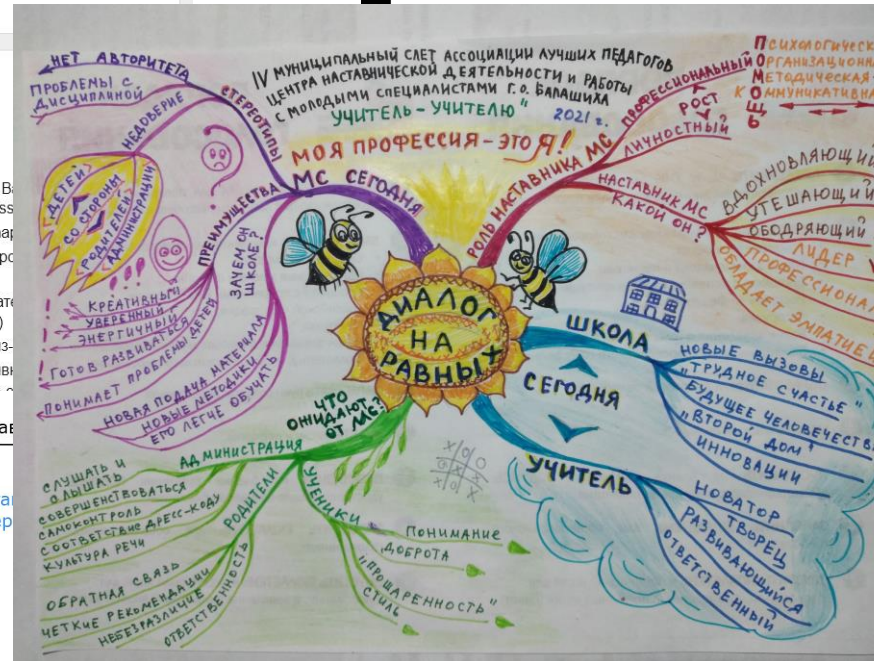 IV МУНИЦИПАЛЬНЫЙ СЛЕТ АССОЦИАЦИИ ЛУЧШИХ ПЕДАГОГОВ
ЦЕНТРА НАСТАВНИЧЕСКОЙ ДЕЯТЕЛЬНОСТИ И РАБОТЫ
С МОЛОДЫМИ СПЕЦИАЛИСТАМИ Г.О. БАЛАШИХА
УЧИТЕЛЬ-УЧИТЕЛЮ"
2021 г.
МОЯ ПРОФЕССИЯ-ЭТО Я!
ДИАЛОГ
НА
РАВНЫХ
МС СЕГОДНЯ
СТЕРЕОТИПЫ
НЕТ АВТОРИТЕТА
ПРОБЛЕМЫ С
ДИСЦИПЛИНОЙ
НЕДОВЕРИЕ
ДЕТЕЙ
СО СТОРОНЫ
РОДИТЕЛЕЙ
АДМИНИСТРАЦИИ
ПРЕИМУЩЕСТВА
КРЕАТИВНЫЙ
УВЕРЕННЫЙ
ЭНЕРГИЧНЫЙ
ГОТОВ РАЗВИВАТЬСЯ
ПОНИМАЕТ ПРОБЛЕМЫ ДЕТЕЙ
ЗАЧЕМ ОН
ШКОЛЕ?
НОВАЯ ПОДАЧА МАТЕРИАЛА
НОВЫЕ МЕТОДИКИ
ЕГО ЛЕГЧЕ ОБУЧАТЬ
РОЛЬ НАСТАВНИКА МС
ПРОФЕССИОНАЛЬНЫЙ
РОСТ
ЛИЧНОСТНЫЙ
ПОМОЩЬ
ПСИХОЛОГИЧЕСК
ОРГАНИЗАЦИОНН
МЕТОДИЧЕСКАЯ
КОММУНИКАТИВНА
НАСТАВНИК МС
КАКОЙ ОН?
ВДОХНОВЛЯЮЩИЙ
УТЕШАЮЩИЙ
ОБОДРЯЮЩИЙ
ЛИДЕР
ПРОФЕССИОНА
ОБЛАДАЕТ ЭМПАТИЕЙ
ШКОЛА
СЕГОДНЯ
УЧИТЕЛЬ
НОВЫЕ ВЫЗОВЫ
„ТРУДНОЕ СЧАСТЬЕ"
БУДУЩЕЕ ЧЕЛОВЕЧЕСТВА
„ВТОРОЙ ДОМ"
ИННОВАЦИИ
НОВАТОР
ТВОРЕЦ
РАЗВИВАЮЩИЙСЯ
ОТВЕТСТВЕННЫЙ
ЧТО
ОЖИДАЮТ
ОТ МС?
АДМИНИСТРАЦИЯ
СЛУШАТЬ И
СЛЫШАТЬ
СОВЕРШЕНСТВОВАТЬСЯ
САМОКОНТРОЛЬ
СООТВЕТСТВИЕ ДРЕСС-КОДУ
КУЛЬТУРА РЕЧИ
РОДИТЕЛИ
ОБРАТНАЯ СВЯЗЬ
ЧЕТКИЕ РЕКОМЕНДАЦИИ
НЕБЕЗРАЗЛИЧИЕ
ОТВЕТСТВЕННОСТЬ
УЧЕНИКИ
ПОНИМАНИЕ
ДОБРОТА
„ПРОШАРЕННОСТЬ"
СТИЛЬ